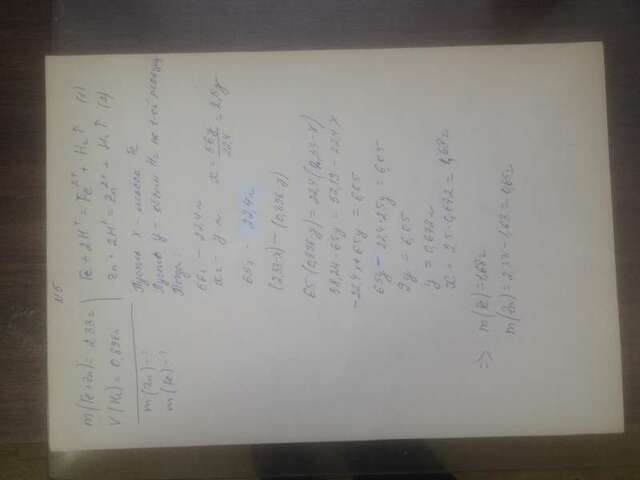 №5
m(Fe+Zn) = 2,33г
V(H₂) = 0,896л
m(Zn) - ?
m(Fe) - ?
Fe + 2H⁺ = Fe²⁺ + H₂↑ (1)
Zn + 2H⁺ = Zn²⁺ + H₂↑ (2)
Пусть x - масса Fe
Пусть y - объем H₂ по 1-ой реакции
Тогда:
56г - 22,4л
xг - y л x = 56y/22,4 = 2,5y
65г - 22,4л
(2,33-x) - (0,896-y)
65(0,896-y) = 22,4(2,33-x)
58,24-65y = 52,19-22,4x
-22,4x+65y = 6,05
65y - 22,4·2,5y = 6,05
9y = 6,05
y = 0,672л
x = 2,5·0,672 = 1,68г
=> m(Fe) = 1,68г
m(Zn) = 2,33-1,68 = 0,65г